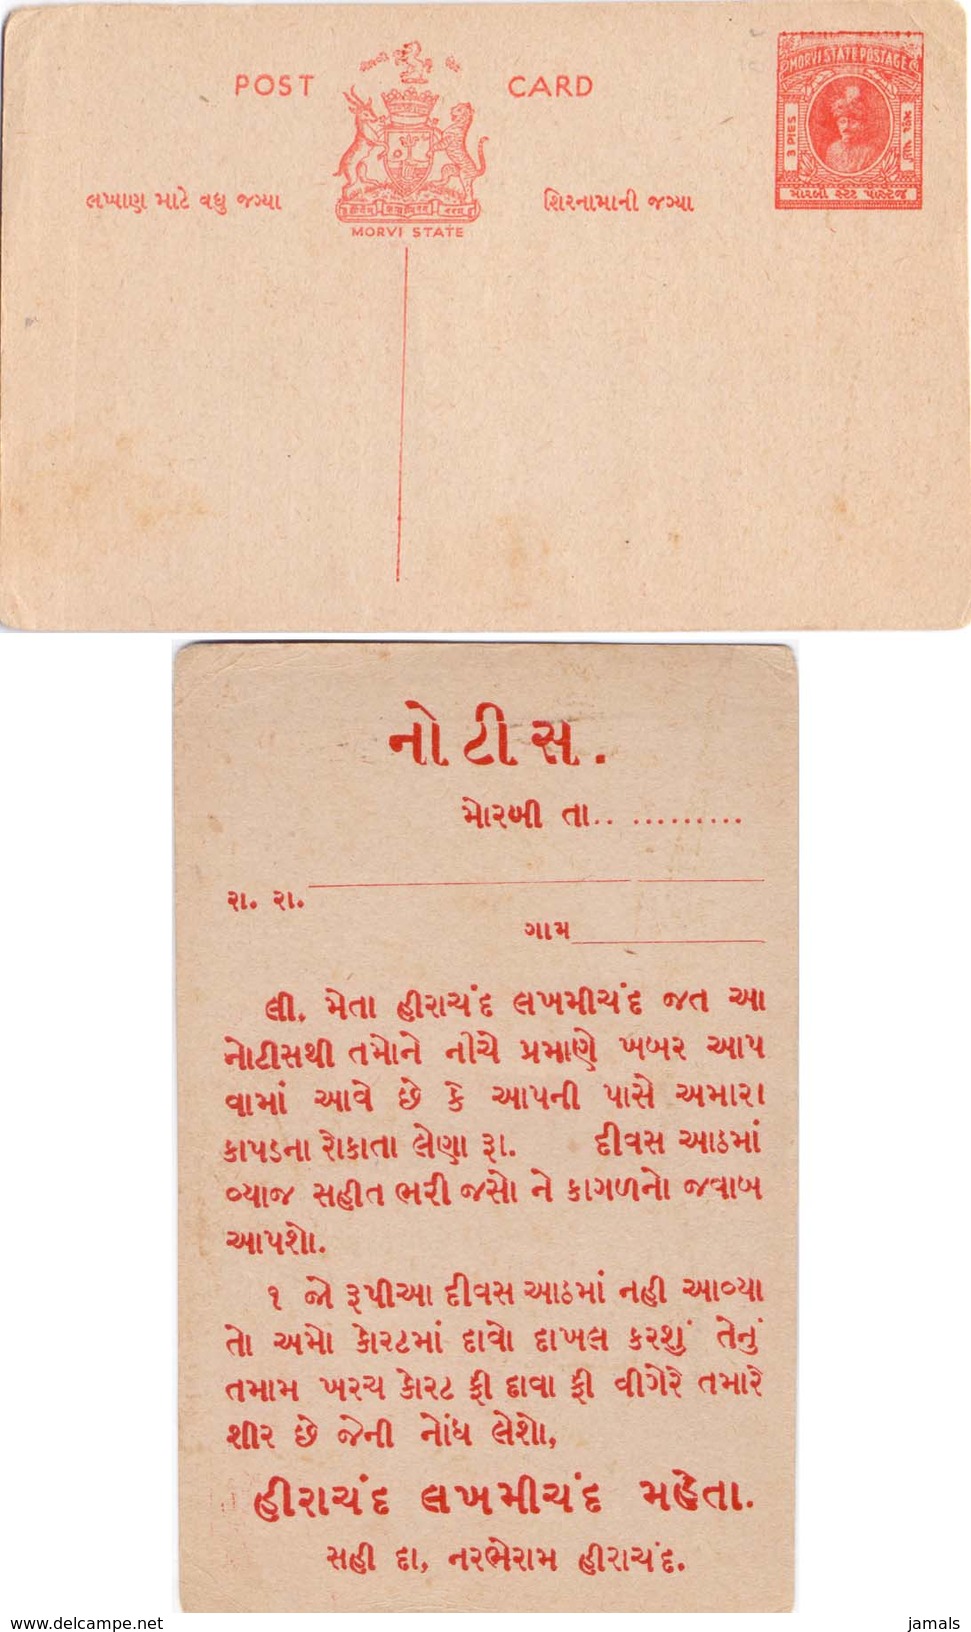 POST CARD
MORVI STATE POSTAGE
3 PIES
મોરબી સ્ટેટ પોસ્ટેજ
લખાણ માટે વધુ જગ્યા
શિરનામાની જગ્યા
MORVI STATE
નોટીસ.
મોરબી તા.. ..........
રા. રા.
ગામ
લી. મેતા હીરાચંદ લખમીચંદ જત આ
નોટીસથી તમોને નીચે પ્રમાણે ખબર આપ
વામાં આવે છે કે આપની પાસે અમારા
કાપડના રોકાતા લેણા રૂા. દીવસ આઠમાં
વ્યાજ સહીત ભરી જસો ને કાગળનો જવાબ
આપશો.
૧ જો રૂપીઆ દીવસ આઠમાં નહી આવ્યા
તો અમો કોરટમાં દાવો દાખલ કરશું તેનું
તમામ ખરચ કોરટ ફી દાવા ફી વીગેરે તમારે
શીર છે જેની નોંધ લેશો,
હીરાચંદ લખમીચંદ મહેતા.
સહી દા, નરભેરામ હીરાચંદ.
www.delcampe.net
jamals